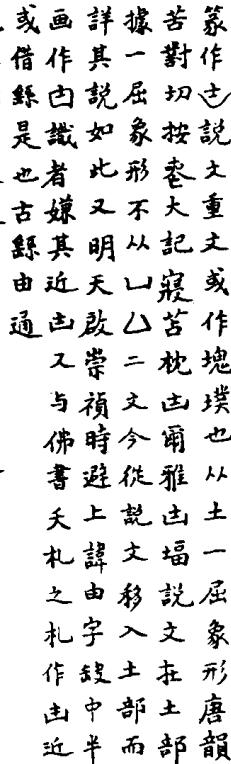 篆作凷説文重文或作塊墣也从土一屈象形唐韻
苦對切按喪大記寢苫枕凷爾雅凷堛説文在土部
據一屈象形不从凵乙二文今從説文移入土部而
詳其説如此又明天啟崇禎時避上諱由字缺中半
画作甴識者嫌其近凷又与佛書夭札之札作凷近
或借繇是也古繇由通